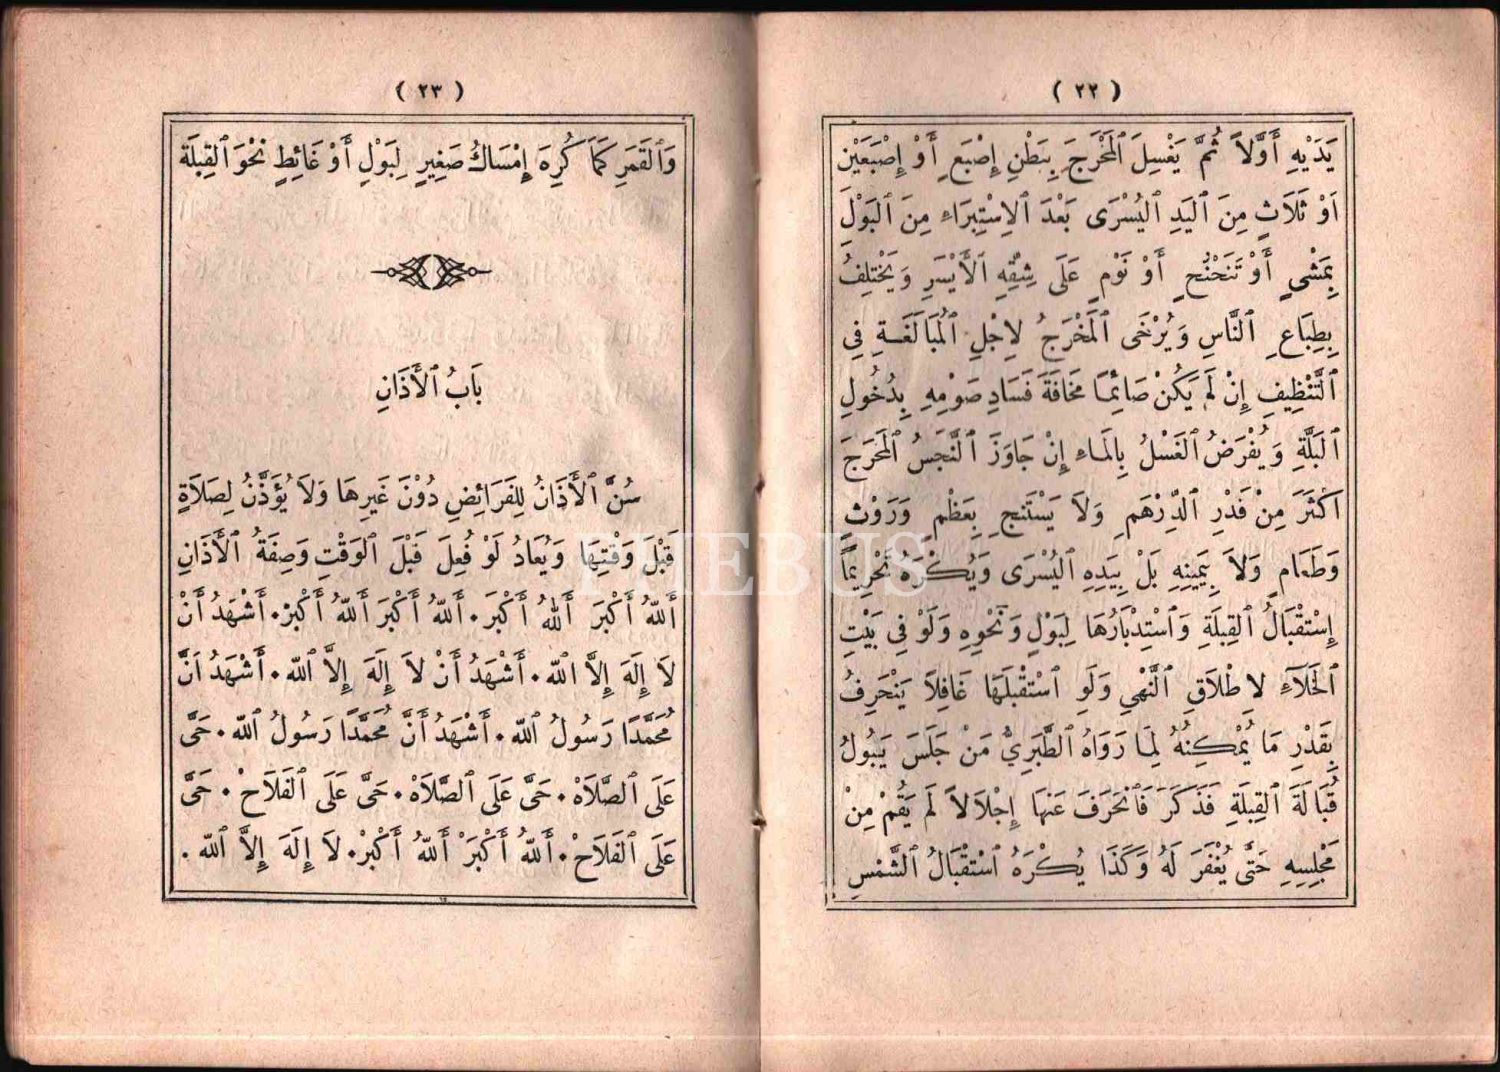 ( ٢٢ )
يَدَيْهِ أَوَّلاً ثُمَّ يَغْسِلَ ٱلْمَخْرَجَ بِبَطْنِ إِصْبَعٍ أَوْ إِصْبَعَيْنِ
أَوْ ثَلَاثٍ مِنَ ٱلْيَدِ ٱلْيُسْرَى بَعْدَ ٱلِاسْتِبْرَاءِ مِنَ ٱلْبَوْلِ
بِمَشْىٍ أَوْ تَنَحْنُحٍ أَوْ نَوْمٍ عَلَى شِقِّهِ ٱلْأَيْسَرِ وَيَخْتَلِفُ
بِطِبَاعِ ٱلنَّاسِ وَيُرْخَى ٱلْمَخْرَجُ لِاجْلِ ٱلْمُبَالَغَةِ فِي
ٱلتَّنْظِيفِ إِنْ لَمْ يَكُنْ صَائِمًا مَخَافَةَ فَسَادِ صَوْمِهِ بِدُخُولِ
ٱلْبَلَّةِ وَيُفْرَضُ ٱلْغَسْلُ بِالْمَاءِ إِنْ جَاوَزَ ٱلنَّجَسُ ٱلْمَخْرَجَ
اَكْثَرَ مِنْ قَدْرِ ٱلدِّرْهَمِ وَلاَ يَسْتَنْجِ بِعَظْمٍ وَرَوْثٍ
وَطَعَامٍ وَلاَ بِيَمِينِهِ بَلْ بِيَدِهِ ٱلْيُسْرَى وَيُكْرَهُ تَحْرِيمًا
إِسْتِقْبَالُ ٱلْقِبْلَةِ وَٱسْتِدْبَارُهَا لِبَوْلٍ وَنَحْوِهِ وَلَوْ فِي بَيْتِ
ٱلْخَلَآءِ لِاطْلَاقِ ٱلنَّهْيِ وَلَوِ ٱسْتَقْبَلَهَا غَافِلاً يَنْحَرِفُ
بِقَدْرِ مَا يُمْكِنُهُ لِمَا رَوَاهُ ٱلطَّبَرِيُّ مَنْ جَلَسَ يَبُولُ
قُبَالَةَ ٱلْقِبْلَةِ فَذَكَرَ فَٱنْحَرَفَ عَنْهَا إِجْلَالاً لَمْ يَقُمْ مِنْ
مَجْلِسِهِ حَتَّى يُغْفَرَ لَهُ وَكَذَا يُكْرَهُ ٱسْتِقْبَالُ ٱلشَّمْسِ
( ٢٣ )
وَٱلْقَمَرِ كَمَا كُرِهَ إِمْسَاكُ صَغِيرٍ لِبَوْلٍ أَوْ غَائِطٍ نَحْوَ ٱلْقِبْلَةِ
بَابُ ٱلْأَذَانِ
سُنَّ ٱلْأَذَانُ لِلْفَرَائِضِ دُوْنَ غَيرِهَا وَلاَ يُؤَذَّنُ لِصَلَاةٍ
قَبْلَ وَقْتِهَا وَيُعَادُ لَوْ فُعِلَ قَبْلَ ٱلْوَقْتِ وَصِفَةُ ٱلْأَذَانِ
أَللّٰهُ أَكْبَرَ أَللّٰهُ أَكْبَرَ . أَللّٰهُ أَكْبَرَ أَللّٰهُ أَكْبَرْ . أَشْهَدُ أَنْ
لاَ إِلَهَ إِلاَّ ٱللّٰه . أَشْهَدُ أَنْ لاَ إِلَهَ إِلاَّ ٱللّٰه . أَشْهَدُ اَنَّ
مُحَمَّدًا رَسُولُ ٱللّٰه . أَشْهَدُ أَنَّ مُحَمَّدًا رَسُولُ ٱللّٰه . حَىَّ
عَلَى ٱلصَّلَاهْ . حَىَّ عَلَى ٱلصَّلَاهْ . حَىَّ عَلَى ٱلْفَلَاحْ . حَىَّ
عَلَى ٱلْفَلَاحْ . أَللّٰهُ أَكْبَرَ أَللّٰهُ أَكْبَرْ . لاَ إِلَهَ إِلاَّ ٱللّٰه .
PHEBUS